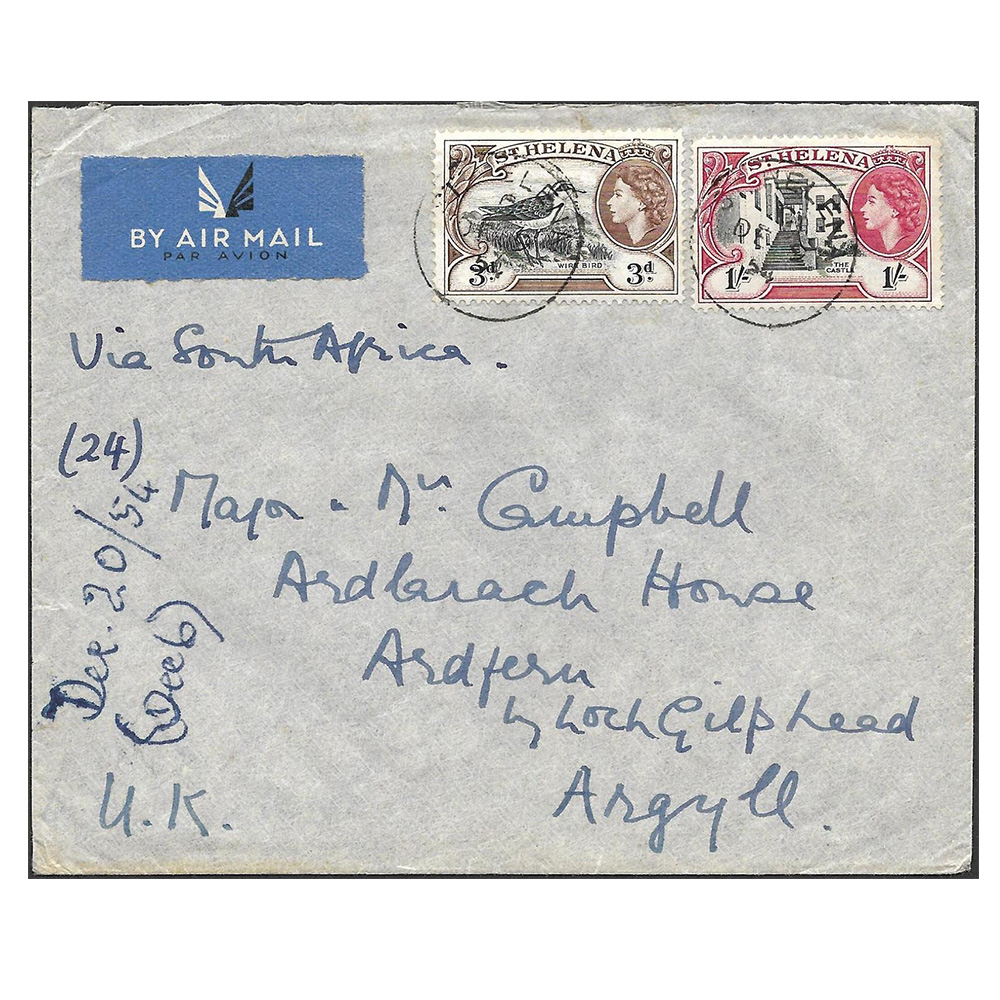 BY AIR MAIL
PAR AVION
ST. HELENA
WIRE BIRD
3d. 3d.
ST HELENA
THE CASTLE
1/- 1/-
Via South Africa.
(24)
Dec. 20/54
(Dec 6)
Major . Mrs. Campbell
Ardlarach House
Ardfern
by Loch Gilphead
Argyll.
U.K.